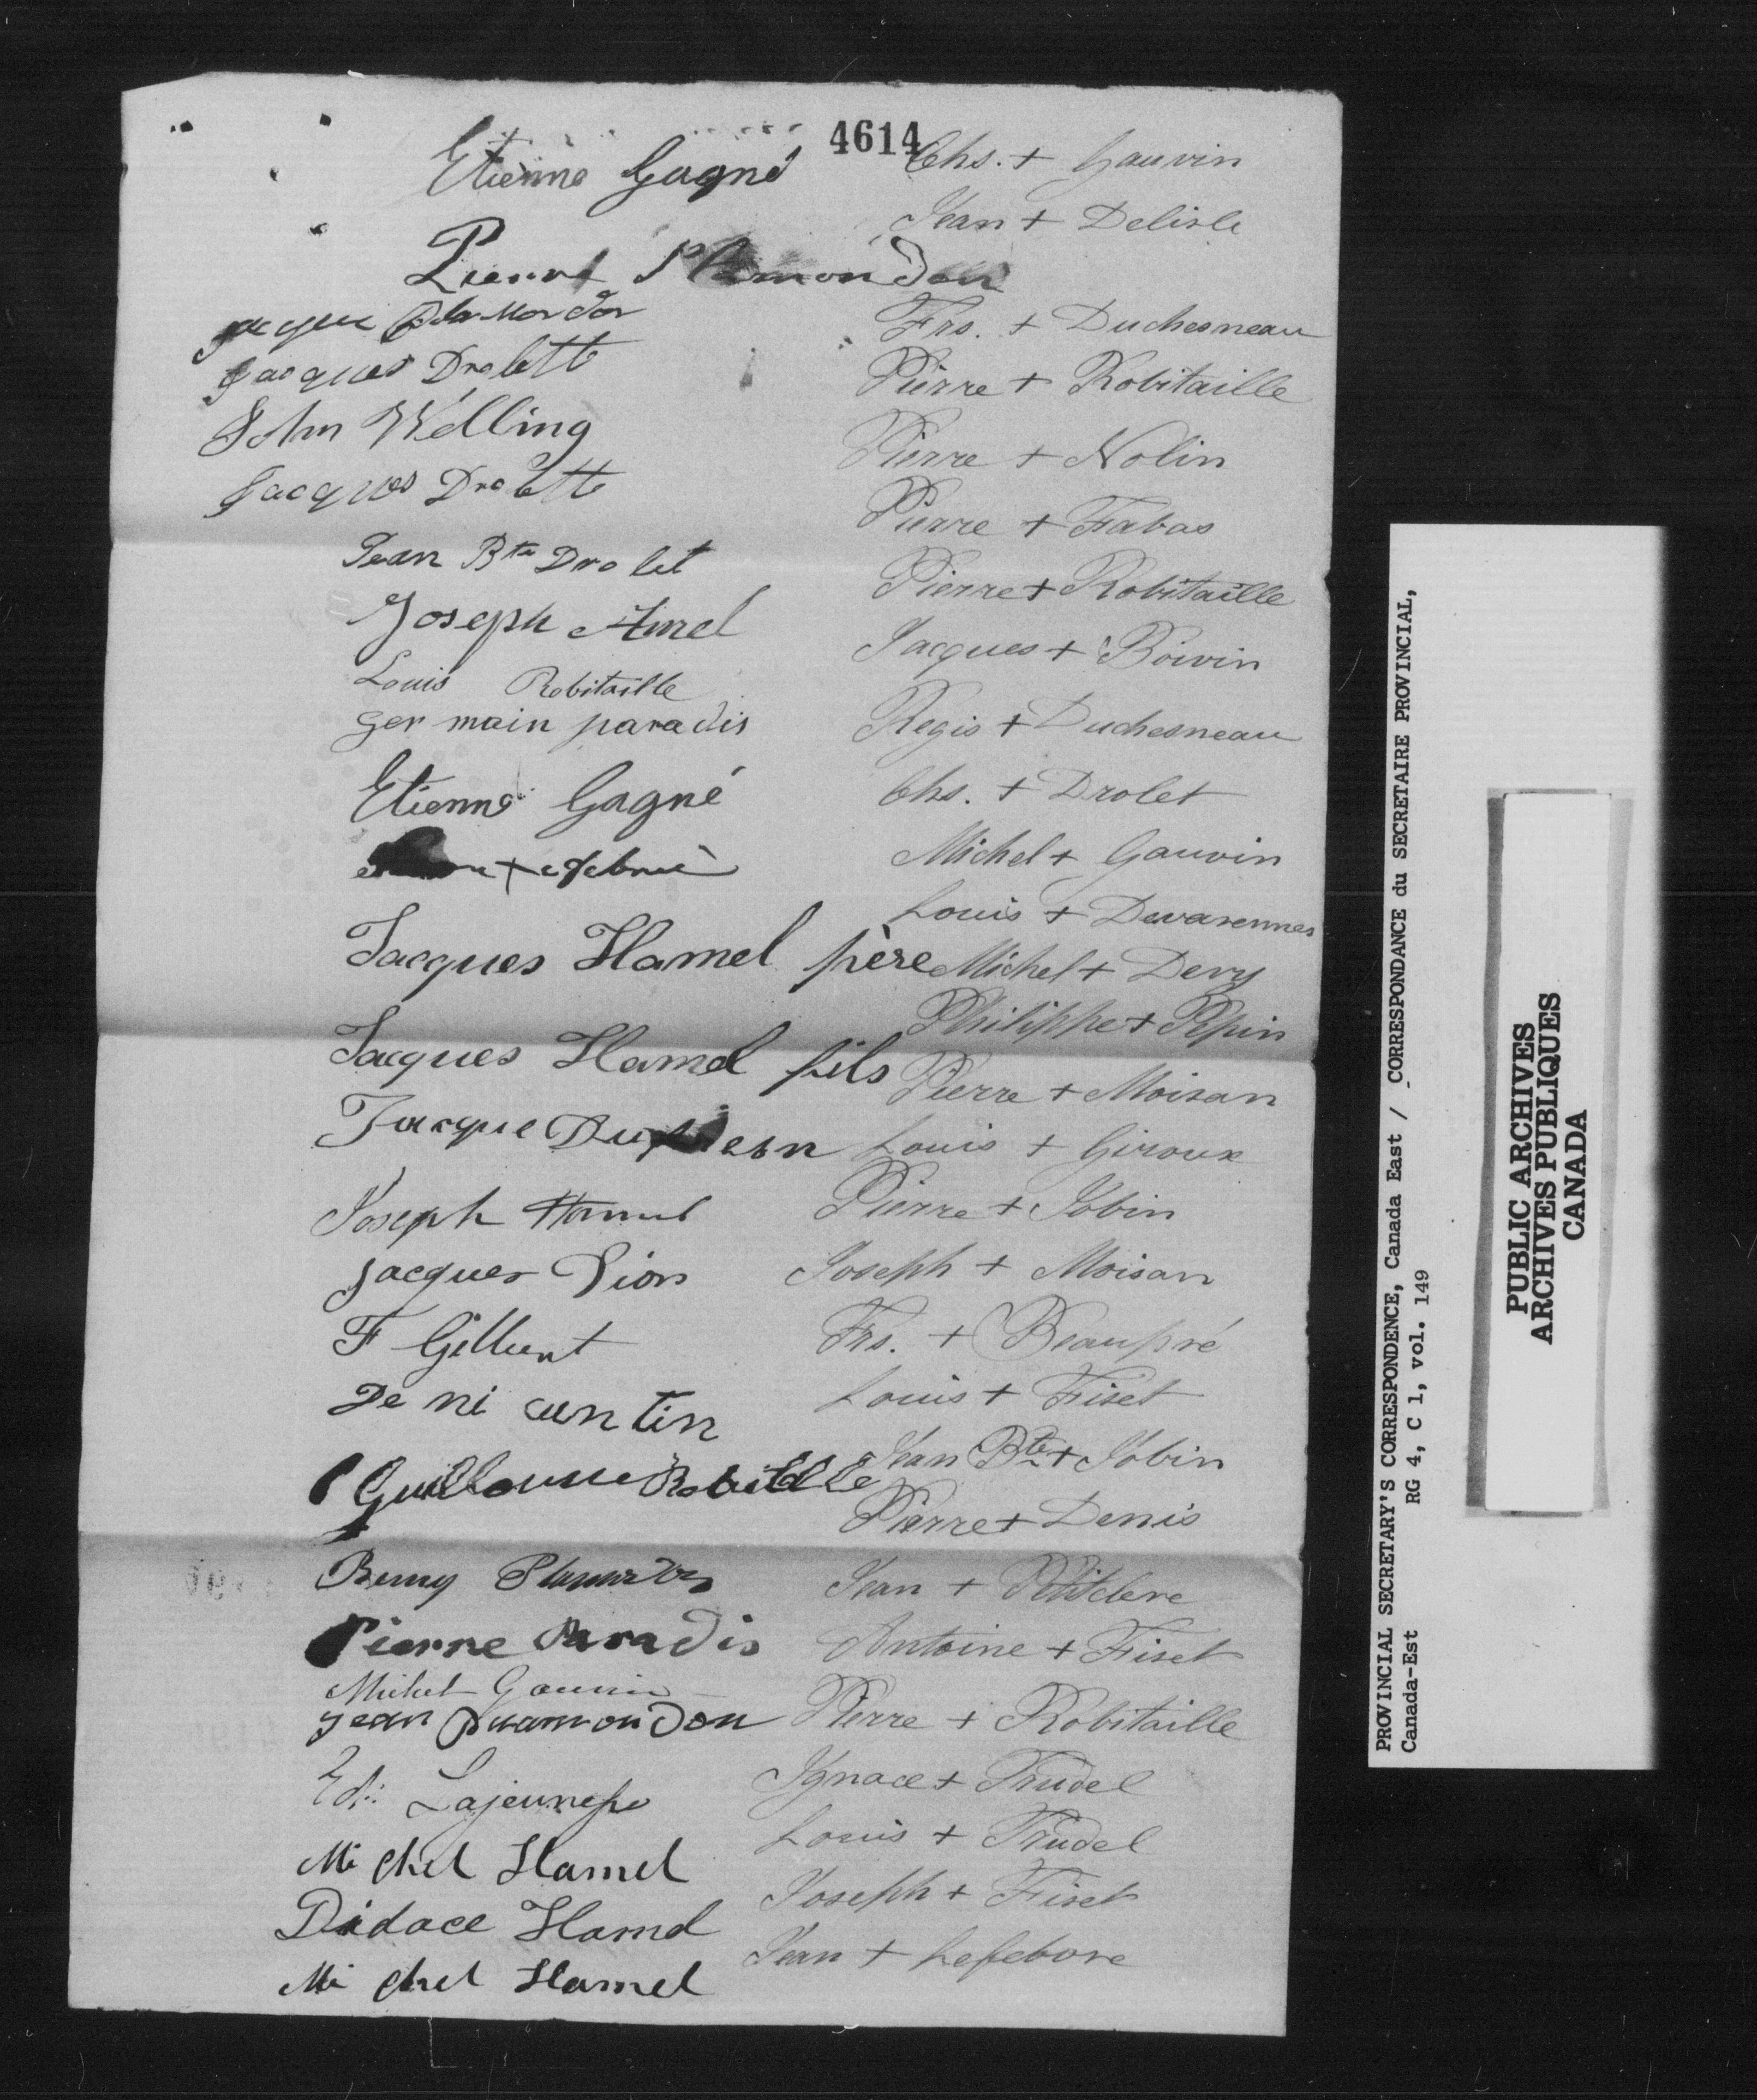 4614
Etienne Gagné
Pierre Plamondon
jacque PlaMondon
Jacques Drolette
John Welling
Jacques Drolette
Jean Bte Drolet
Joseph Amel
Louis Robitaille
ger main paradis
Etienne Gagné
+
Jacques Hamel père
Jacques Hamel fils
Jacque
Joseph Hamel
Jacques Dion
F Gilbert
De ni
Guillaume Robitaille
Remy Plamondon
Pierre Paradis
Michel Gauvin
jean Plamondon
Ed: Lajeunesse
Mi chel Hamel
Didace Hamel
Mi chel Hamel
Chs. + Gauvin
Jean + Delisle
Frs. + Duchesneau
Pierre + Robitaille
Pierre + Nolin
Pierre + Fabas
Pierre + Robitaille
Jacques + Boivin
Regis + Duchesneau
Chs. + Drolet
Michel + Gauvin
Louis + Devarennes
Michel + Dery
Philippe + Pepin
Pierre + Moisan
Louis + Giroux
Pierre + Jobin
Joseph + Moisan
Frs. + Beaupré
Louis + Fiset
Jean Bte + Jobin
Pierre + Denis
Jean + Petitclerc
Antoine + Fiset
Pierre + Robitaille
Ignace + Trudel
Louis + Trudel
Joseph + Fiset
Jean + Lefebvre
PROVINCIAL SECRETARY'S CORRESPONDENCE, Canada East / CORRESPONDANCE du SECRETAIRE PROVINCIAL,
Canada-Est RG 4, C 1, vol. 149
PUBLIC ARCHIVES
ARCHIVES PUBLIQUES
CANADA